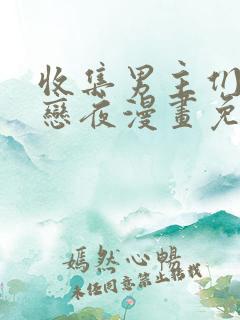 收集男主们
戀夜漫畫免
嫣然心暢
未经同意禁止转载